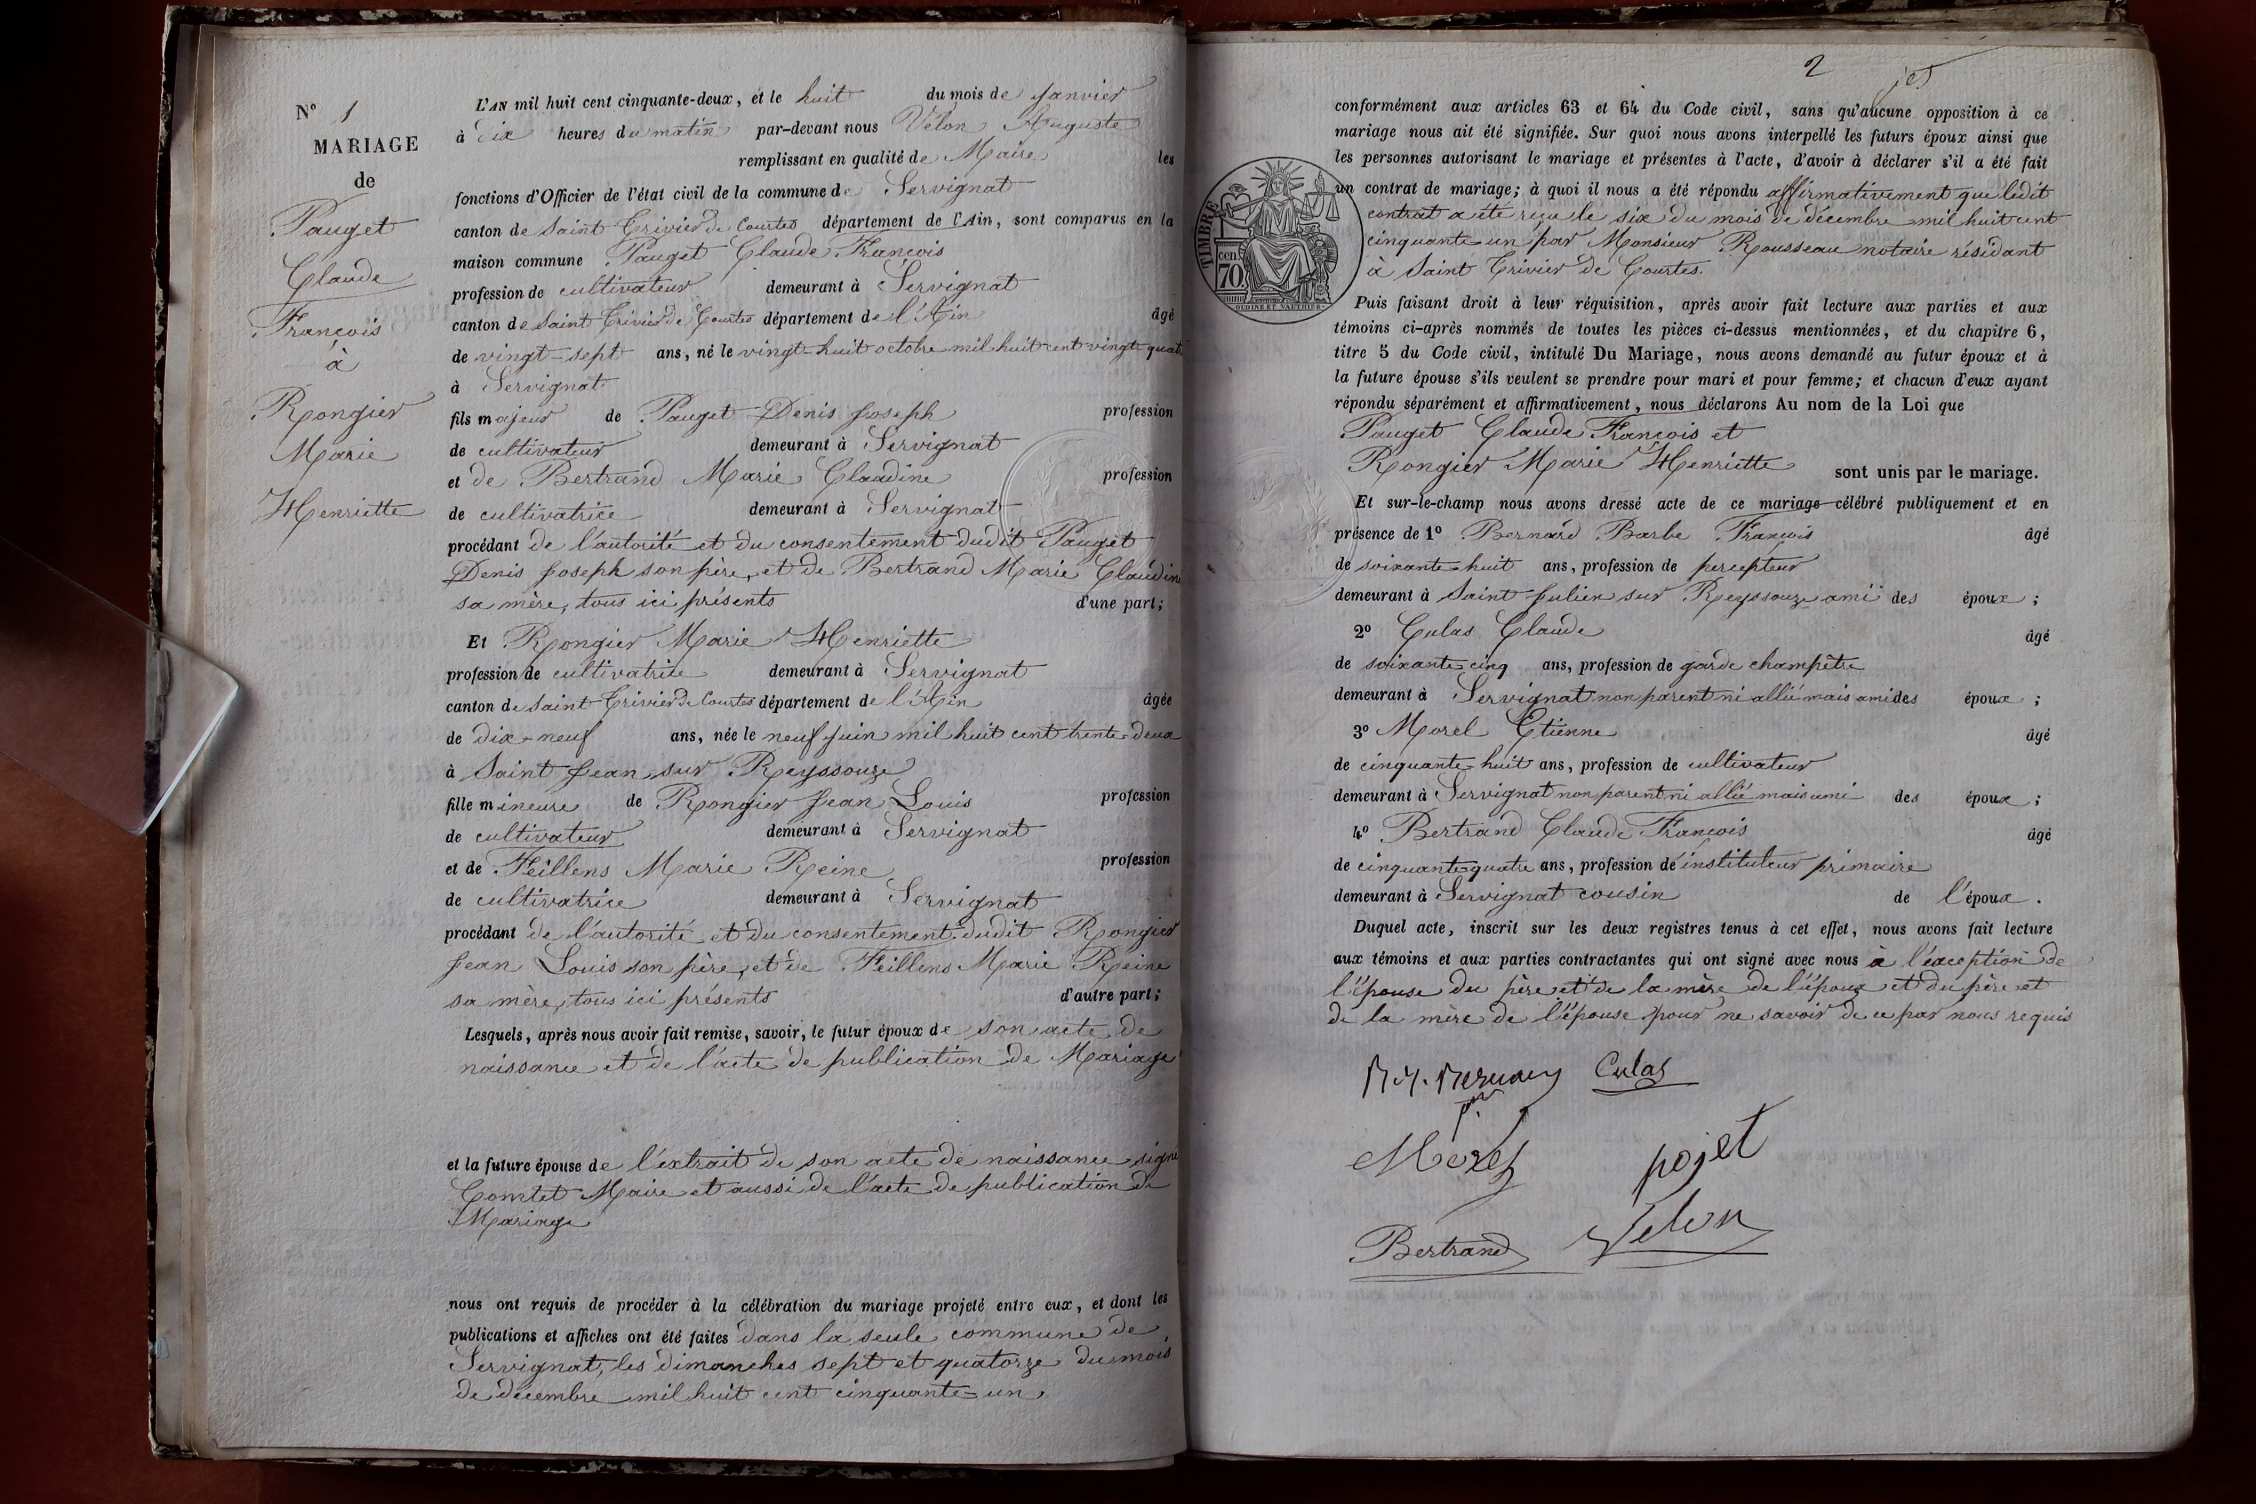 N° 1
MARIAGE
de
Pauget
Claude
François
à
Rongier
Marie
Henriette
L'AN mil huit cent cinquante-deux, et le huit du mois de Janvier
à dix heures du matin par-devant nous Vélon Auguste
remplissant en qualité de Maire les
fonctions d'Officier de l'état civil de la commune de Servignat
canton de Saint Trivier de Courtes département de l'Ain, sont comparus en la
maison commune Pauget Claude François
profession de cultivateur demeurant à Servignat
canton de Saint Trivier de Courtes département de l'Ain âgé
de vingt-sept ans, né le vingt-huit octobre mil huit cent vingt quat
à Servignat
fils majeur de Pauget Denis Joseph profession
de cultivateur demeurant à Servignat
et de Bertrand Marie Claudine profession
de cultivatrice demeurant à Servignat
procédant de l'autorité et du consentement dudit Pauget
Denis Joseph son père, et de Bertrand Marie Claudine
sa mère, tous ici présents d'une part;
Et Rongier Marie Henriette
profession de cultivatrice demeurant à Servignat
canton de Saint Trivier de Courtes département de l'Ain âgée
de dix-neuf ans, née le neuf Juin mil huit cent trente-deux
à Saint Jean sur Reyssouze
fille mineure de Rongier Jean Louis profession
de cultivateur demeurant à Servignat
et de Feillens Marie Reine profession
de cultivatrice demeurant à Servignat
procédant de l'autorité et du consentement dudit Rongier
Jean Louis son père, et de Feillens Marie Reine
sa mère, tous ici présents d'autre part;
Lesquels, après nous avoir fait remise, savoir, le futur époux de son acte de
naissance et de l'acte de publication de Mariage
et la future épouse de l'extrait de son acte de naissance signé
Comtet Maire et aussi de l'acte de publication de
Mariage
nous ont requis de procéder à la célébration du mariage projeté entre eux, et dont les
publications et affiches ont été faites dans la seule commune de
Servignat, les dimanches sept et quatorze du mois
de décembre mil huit cent cinquante-un.
2
conformément aux articles 63 et 64 du Code civil, sans qu'aucune opposition à ce
mariage nous ait été signifiée. Sur quoi nous avons interpellé les futurs époux ainsi que
les personnes autorisant le mariage et présentes à l'acte, d'avoir à déclarer s'il a été fait
un contrat de mariage; à quoi il nous a été répondu affirmativement que ledit
contrat a été reçu le six du mois de décembre mil huit cent
cinquante-un par Monsieur Rousseau notaire résidant
à Saint Trivier de Courtes.
TIMBRE
cen.
70.
OUDINÉ ET VAUTHIER
Puis faisant droit à leur réquisition, après avoir fait lecture aux parties et aux
témoins ci-après nommés de toutes les pièces ci-dessus mentionnées, et du chapitre 6,
titre 5 du Code civil, intitulé Du Mariage, nous avons demandé au futur époux et à
la future épouse s'ils veulent se prendre pour mari et pour femme; et chacun d'eux ayant
répondu séparément et affirmativement, nous déclarons Au nom de la Loi que
Pauget Claude François et
Rongier Marie Henriette sont unis par le mariage.
Et sur-le-champ nous avons dressé acte de ce mariage célébré publiquement et en
présence de 1° Bernard Barbe François âgé
de soixante-huit ans, profession de percepteur
demeurant à Saint Julien sur Reyssouze ami des époux;
2° Culas Claude âgé
de soixante-cinq ans, profession de garde champêtre
demeurant à Servignat non parent ni allié mais ami des époux;
3° Morel Etienne âgé
de cinquante-huit ans, profession de cultivateur
demeurant à Servignat non parent ni allié mais ami des époux;
4° Bertrand Claude François âgé
de cinquante-quatre ans, profession de instituteur primaire
demeurant à Servignat cousin de l'époux.
Duquel acte, inscrit sur les deux registres tenus à cet effet, nous avons fait lecture
aux témoins et aux parties contractantes qui ont signé avec nous à l'exception de
l'épouse du père et de la mère de l'époux et du père et
de la mère de l'épouse pour ne savoir de ce par nous requis
Culas
Morel
pojet
Bertrand
Velon